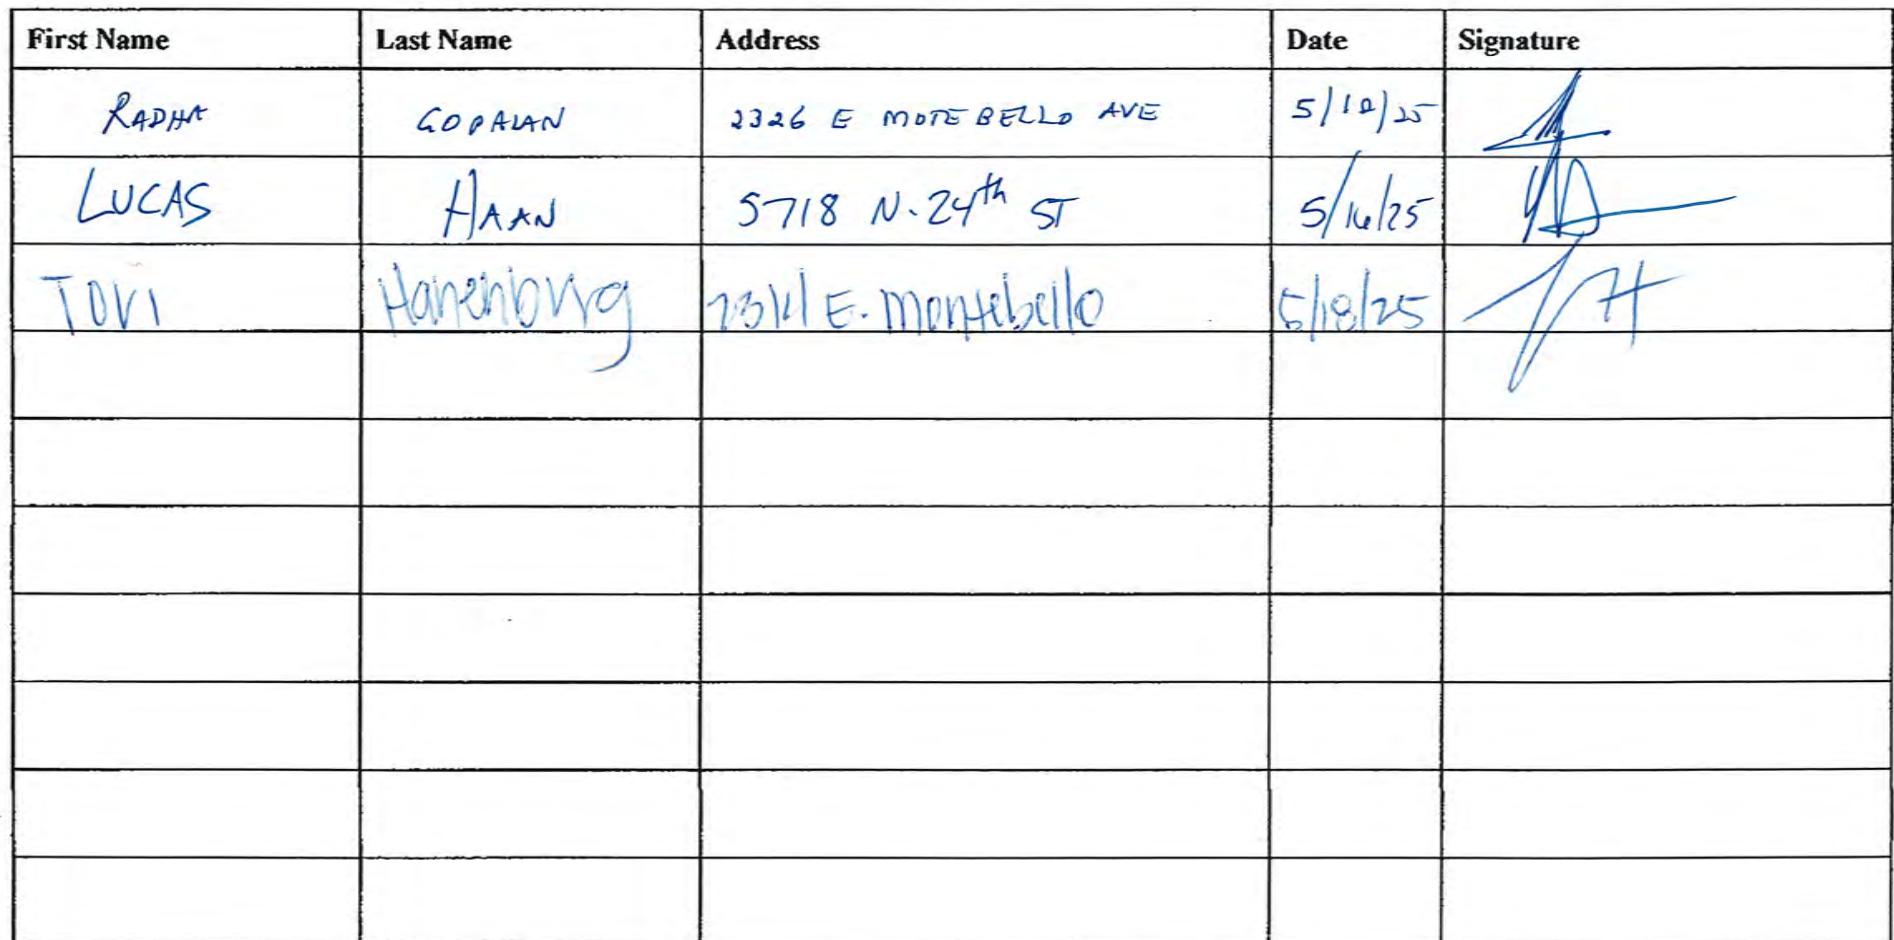 First Name Last Name Address Date Signature
RADHA GOPALAN 2326 E MOTEBELLO AVE 5/18/25
LUCAS HAAN 5718 N. 24th ST 5/16/25
TORI Hanenburg E. Montebello 5/18/25